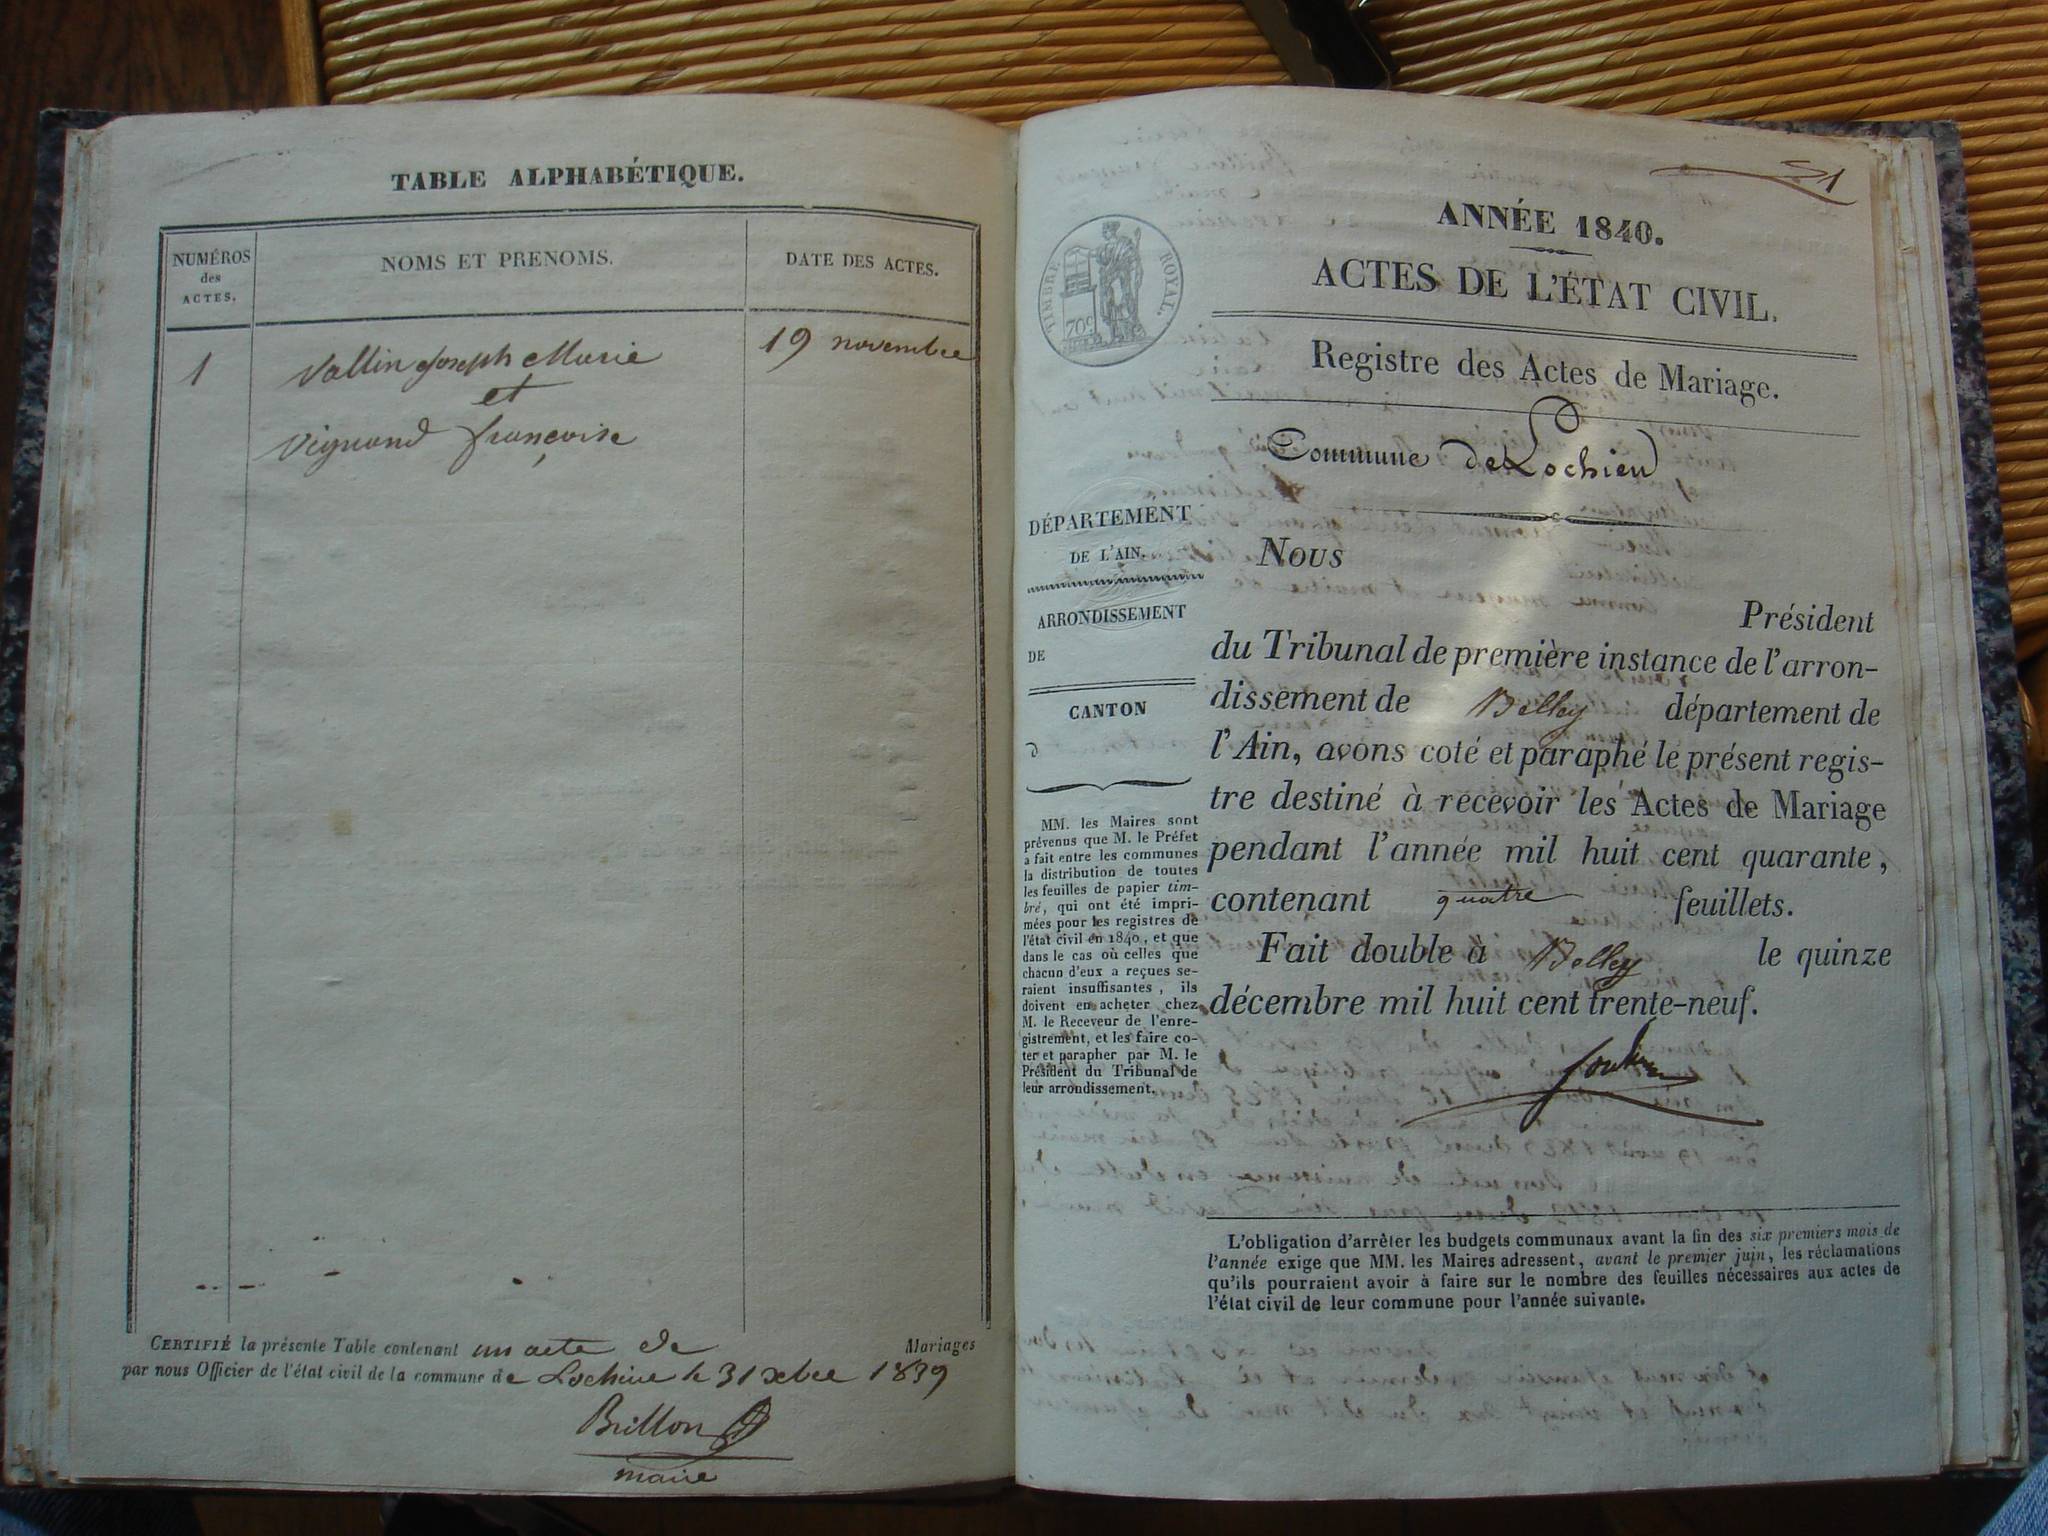 TABLE ALPHABÉTIQUE.
NUMÉROS
des
ACTES.
NOMS ET PRENOMS.
DATE DES ACTES.
1
Vallin Joseph Marie
19 novembre
et
Vignand françoise
CERTIFIÉ la présente Table contenant un acte de Mariages
par nous Officier de l'état civil de la commune de Lochieu le 31 xbre 1839
Brillon
maire
1
ANNÉE 1840.
ACTES DE L'ÉTAT CIVIL.
TIMBRE ROYAL.
70c
Registre des Actes de Mariage.
Commune de Lochieu
DÉPARTEMENT
DE L'AIN.
ARRONDISSEMENT
DE
CANTON
d
MM. les Maires sont
prévenus que M. le Préfet
a fait entre les communes
la distribution de toutes
les feuilles de papier tim-
bré, qui ont été impri-
mées pour les registres de
l'état civil en 1840, et que
dans le cas où celles que
chacun d'eux a reçues se-
raient insuffisantes, ils
doivent en acheter chez
M. le Receveur de l'enre-
gistrement, et les faire co-
ter et parapher par M. le
Président du Tribunal de
leur arrondissement.
Nous
Président
du Tribunal de première instance de l'arron-
dissement de Belley département de
l'Ain, avons coté et paraphé le présent regis-
tre destiné à recevoir les Actes de Mariage
pendant l'année mil huit cent quarante,
contenant quatre feuillets.
Fait double à Belley le quinze
décembre mil huit cent trente-neuf.
L'obligation d'arrêter les budgets communaux avant la fin des six premiers mois de
l'année exige que MM. les Maires adressent, avant le premier juin, les réclamations
qu'ils pourraient avoir à faire sur le nombre des feuilles nécessaires aux actes de
l'état civil de leur commune pour l'année suivante.